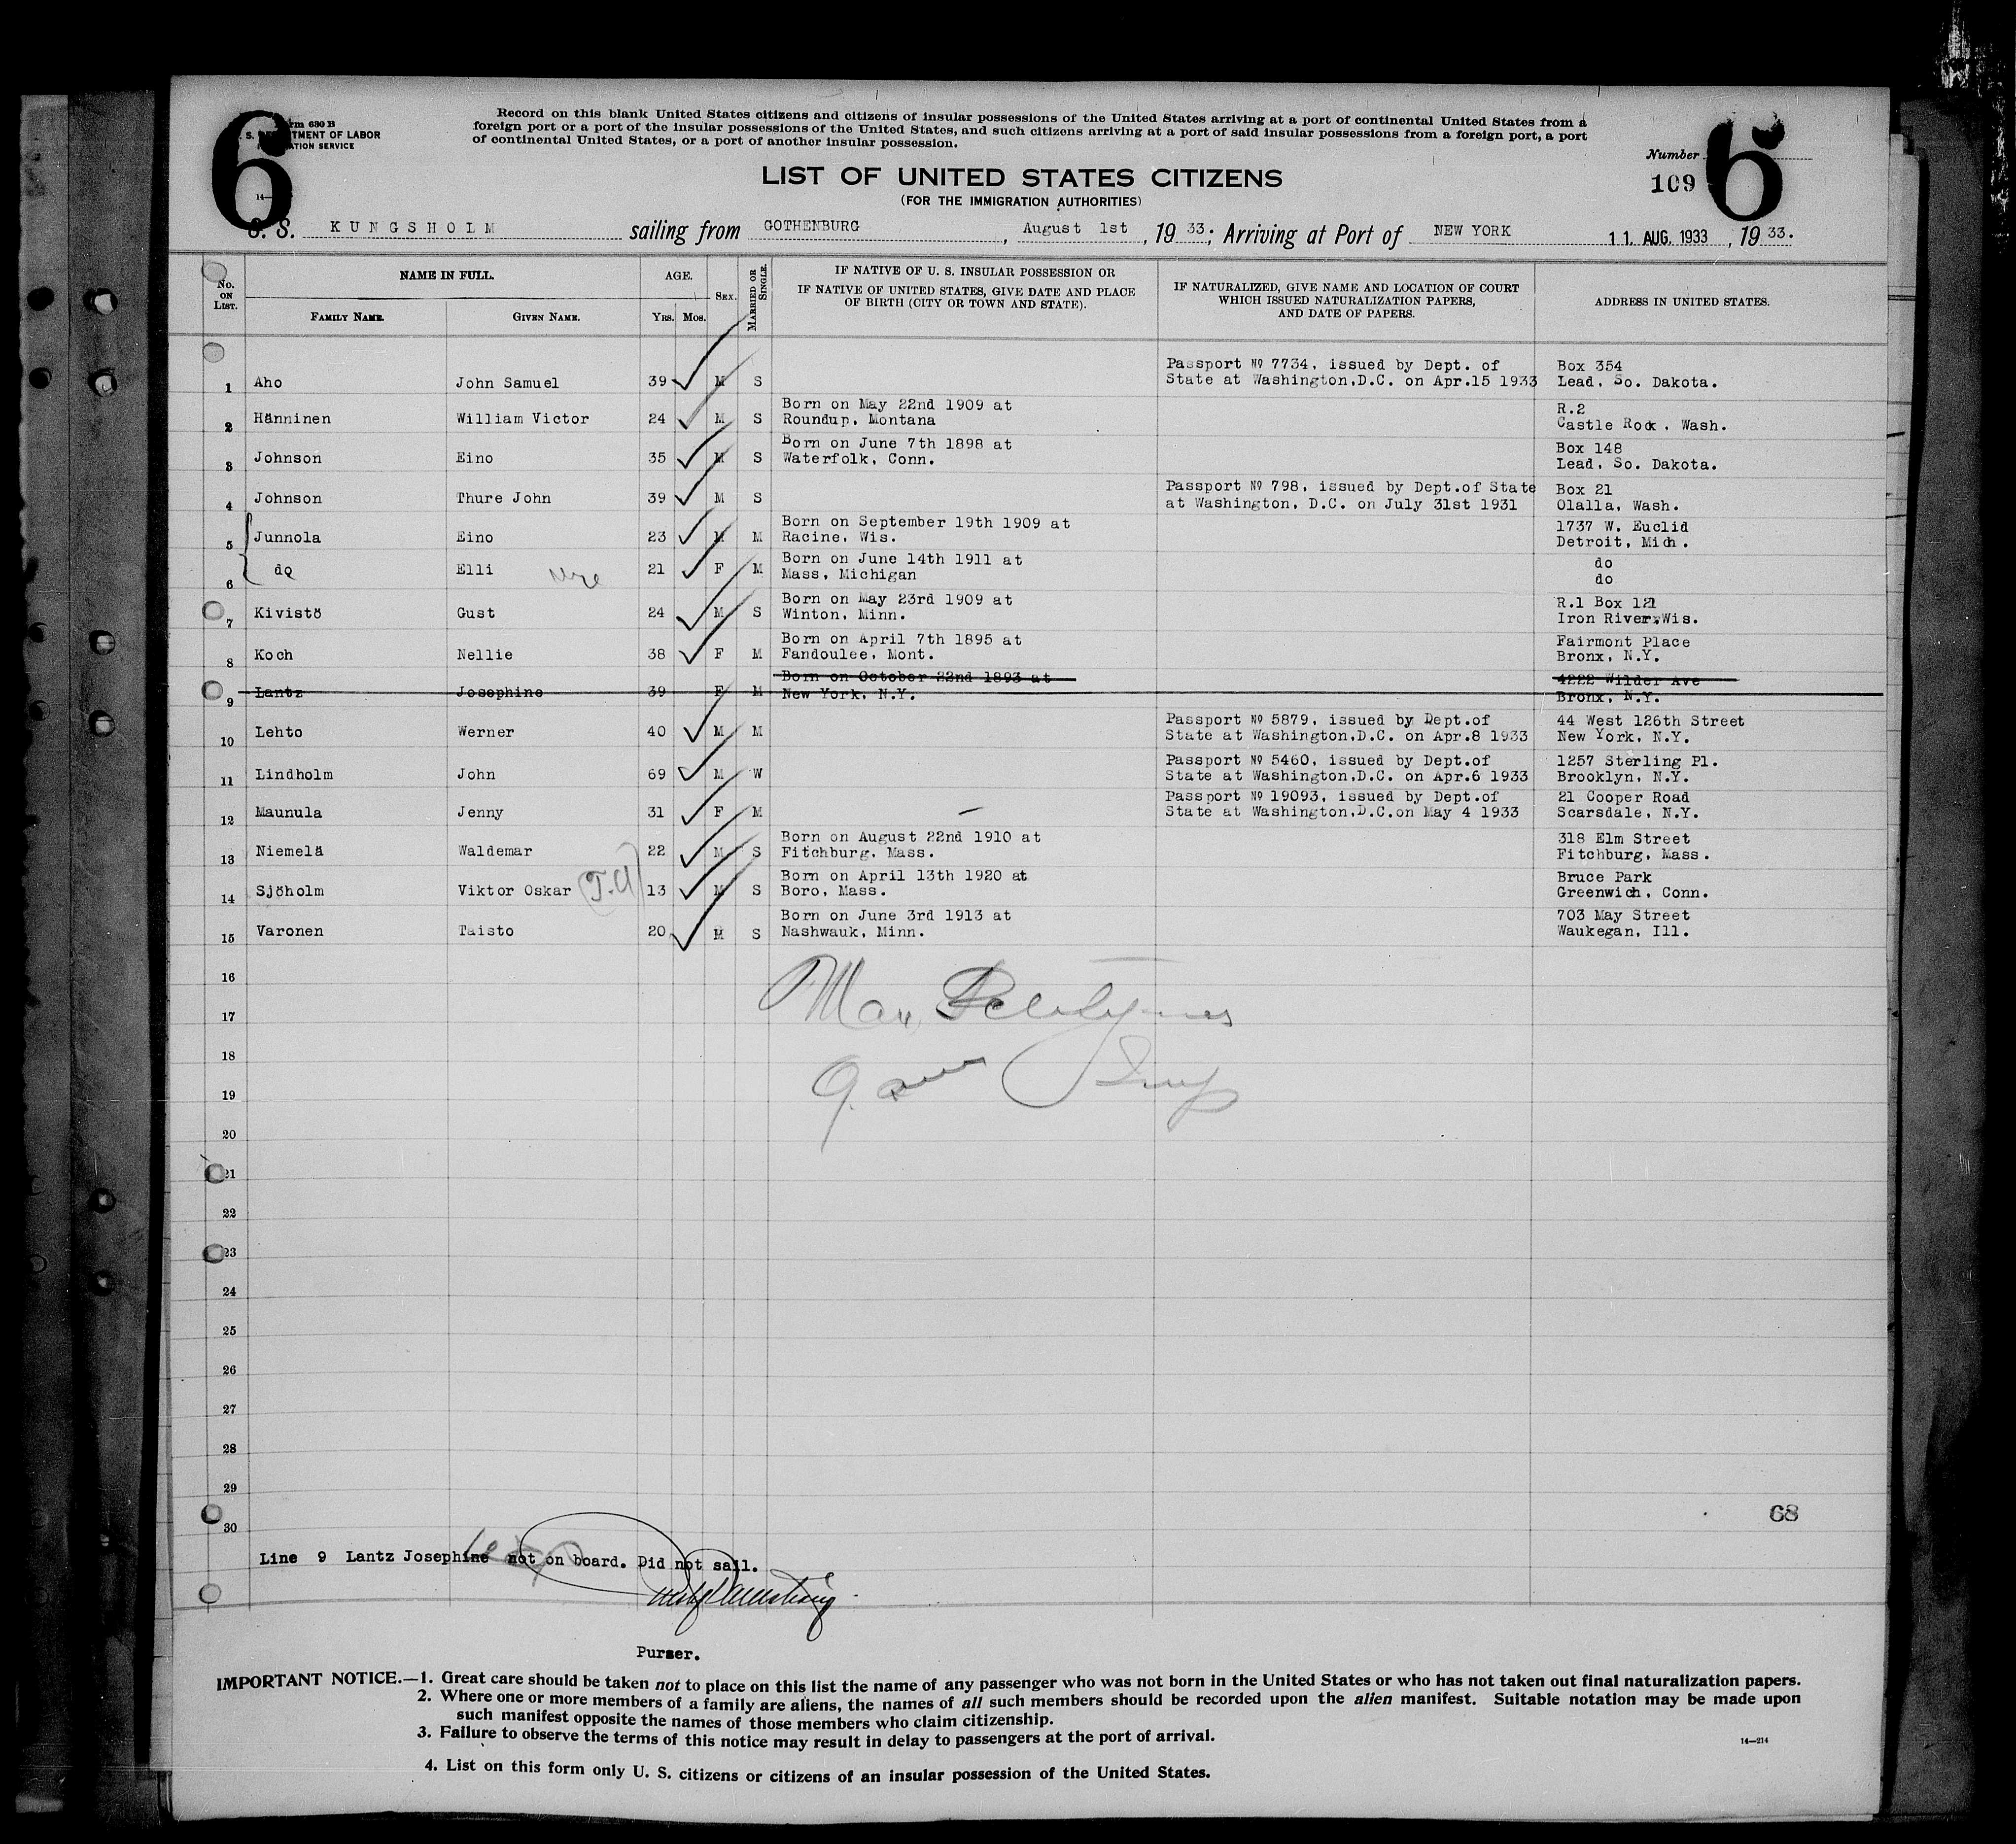 6
Form 630 B
S. DEPARTMENT OF LABOR
IMMIGRATION SERVICE
Record on this blank United States citizens and citizens of insular possessions of the United States arriving at a port of continental United States from a
foreign port or a port of the insular possessions of the United States, and such citizens arriving at a port of said insular possessions from a foreign port, a port
of continental United States, or a port of another insular possession.
Number
6
109
LIST OF UNITED STATES CITIZENS
(FOR THE IMMIGRATION AUTHORITIES)
S. S. KUNGSHOLM sailing from GOTHENBURG, August 1st, 19 33; Arriving at Port of NEW YORK 11. AUG. 1933, 19 33.
No. ON LIST.
NAME IN FULL.
FAMILY NAME.
GIVEN NAME.
AGE.
YRS. MOS.
SEX.
MARRIED OR SINGLE.
IF NATIVE OF U. S. INSULAR POSSESSION OR
IF NATIVE OF UNITED STATES, GIVE DATE AND PLACE
OF BIRTH (CITY OR TOWN AND STATE).
IF NATURALIZED, GIVE NAME AND LOCATION OF COURT
WHICH ISSUED NATURALIZATION PAPERS,
AND DATE OF PAPERS.
ADDRESS IN UNITED STATES.
Passport № 7734, issued by Dept. of Box 354
1 Aho John Samuel 39 M S State at Washington,D.C. on Apr.15 1933 Lead, So. Dakota.
Born on May 22nd 1909 at R.2
2 Hänninen William Victor 24 M S Roundup, Montana Castle Rock, Wash.
Born on June 7th 1898 at Box 148
3 Johnson Eino 35 M S Waterfolk, Conn. Lead, So. Dakota.
Passport № 798, issued by Dept.of State Box 21
4 Johnson Thure John 39 M S at Washington, D.C. on July 31st 1931 Olalla, Wash.
Born on September 19th 1909 at 1737 W. Euclid
5 Junnola Eino 23 M M Racine, Wis. Detroit, Mich.
Born on June 14th 1911 at do
6 do Elli 21 F M Mass, Michigan do
Born on May 23rd 1909 at R.1 Box 121
7 Kivistö Gust 24 M S Winton, Minn. Iron River,Wis.
Born on April 7th 1895 at Fairmont Place
8 Koch Nellie 38 F M Fandoulee, Mont. Bronx, N.Y.
Born on October 22nd 1893 at 4222 Wilder Ave
9 Lantz Josephine 39 F M New York, N.Y. Bronx, N.Y.
Passport № 5879, issued by Dept.of 44 West 126th Street
10 Lehto Werner 40 M M State at Washington,D.C. on Apr.8 1933 New York, N.Y.
Passport № 5460, issued by Dept.of 1257 Sterling Pl.
11 Lindholm John 69 M W State at Washington,D.C. on Apr.6 1933 Brooklyn, N.Y.
Passport № 19093, issued by Dept.of 21 Cooper Road
12 Maunula Jenny 31 F M State at Washington,D.C.on May 4 1933 Scarsdale, N.Y.
Born on August 22nd 1910 at 318 Elm Street
13 Niemelä Waldemar 22 M S Fitchburg, Mass. Fitchburg, Mass.
Born on April 13th 1920 at Bruce Park
14 Sjöholm Viktor Oskar 13 M S Boro, Mass. Greenwich, Conn.
Born on June 3rd 1913 at 703 May Street
15 Varonen Taisto 20 M S Nashwauk, Minn. Waukegan, Ill.
16
17
18
19
20
21
22
23
24
25
26
27
28
29
68
30
Line 9 Lantz Josephine not on board. Did not sail.
Purser.
IMPORTANT NOTICE.—1. Great care should be taken not to place on this list the name of any passenger who was not born in the United States or who has not taken out final naturalization papers.
2. Where one or more members of a family are aliens, the names of all such members should be recorded upon the alien manifest. Suitable notation may be made upon
such manifest opposite the names of those members who claim citizenship.
3. Failure to observe the terms of this notice may result in delay to passengers at the port of arrival.
14—214
4. List on this form only U. S. citizens or citizens of an insular possession of the United States.